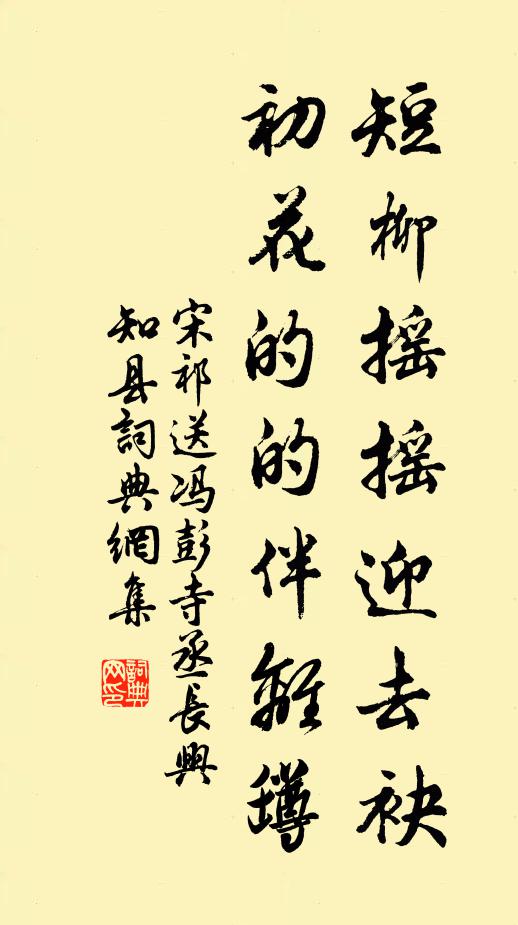 短柳摇摇迎去袂
初花的的伴離罇
宋祁送冯彭寺丞長興
知县詞典網集
詞典网印